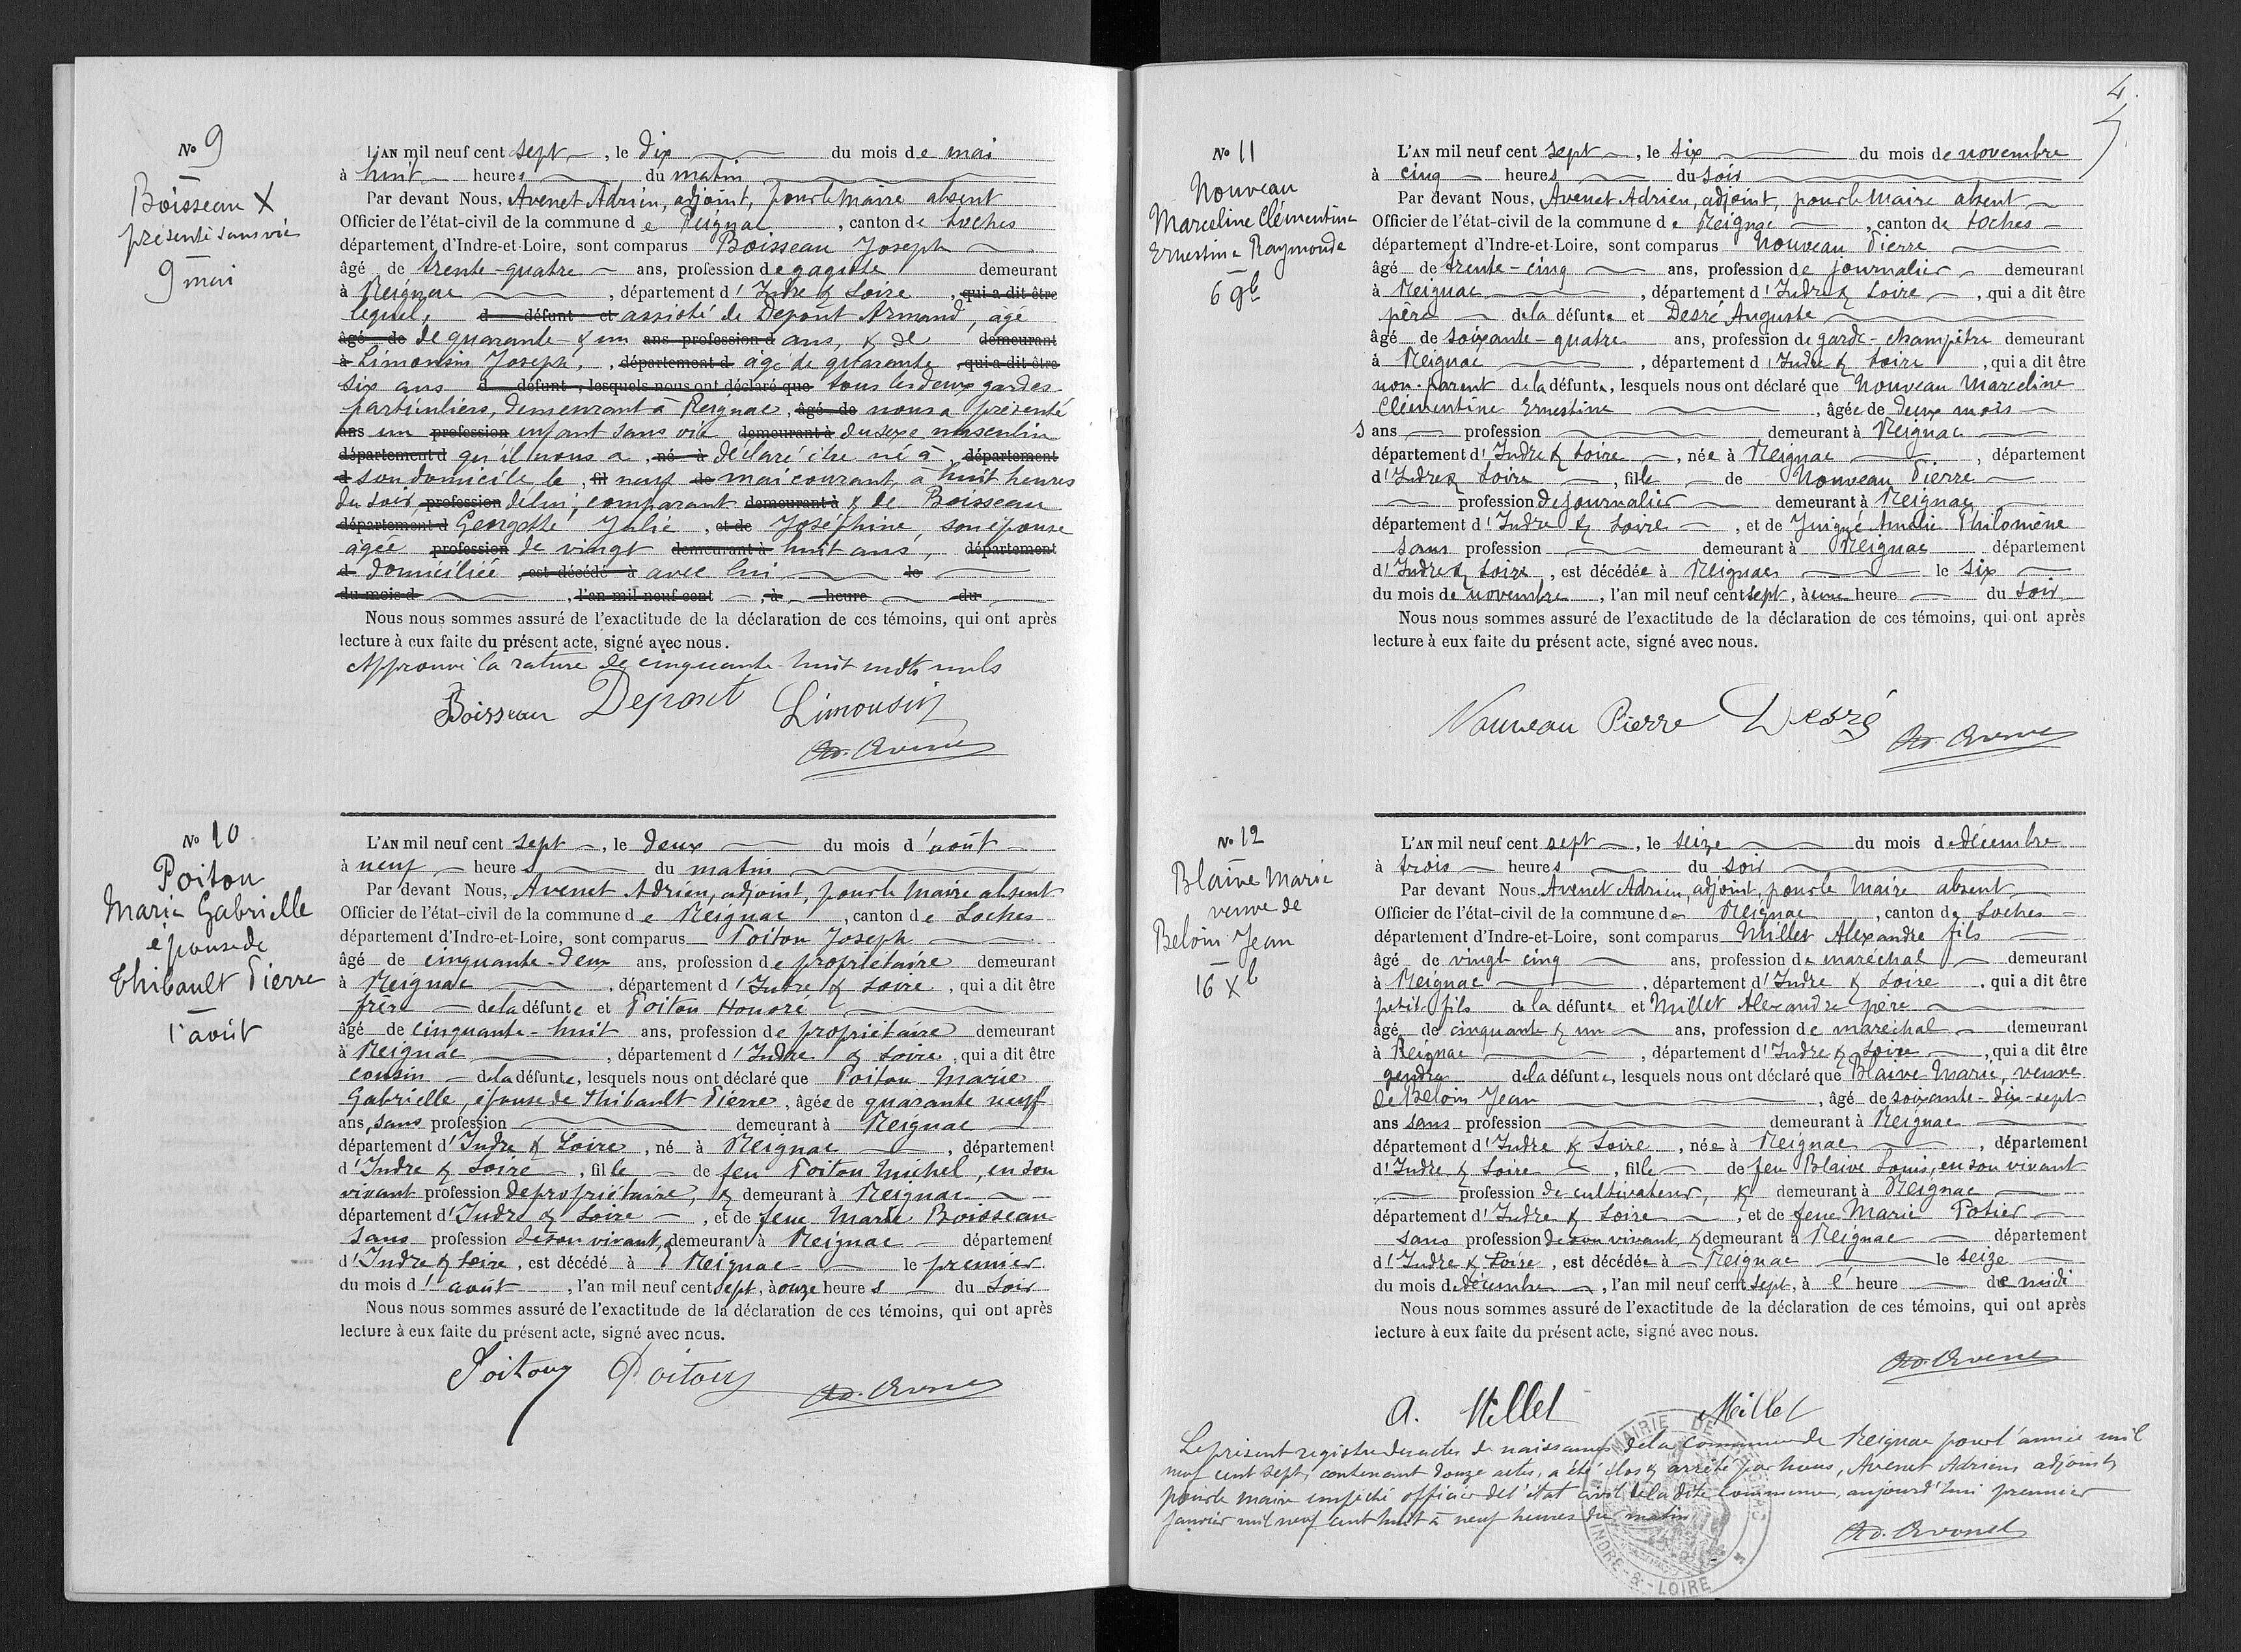 No 9
Boisseau X
présenté sans vie
9 mai
L'AN mil neuf cent sept, le dix du mois de mai
à huit heures du matin
Par devant Nous, Avenet Adrien, adjoint, pour le Maire absent
Officier de l'état-civil de la commune de Reignac, canton de Loches
département d'Indre-et-Loire, sont comparus Boisseau Joseph
âgé de trente-quatre ans, profession de gagiste demeurant
à Reignac, département d'Indre & Loire, qui a dit être
lequel, d défunt et assisté de Depont Armand, âgé
âgé de de quarante-&un ans profession d ans, & de demeurant
à Limousin Joseph, département d âgé de quarante qui a dit être
six ans d défunt, lesquels nous ont déclaré que tous les deux gardes-
particuliers, demeurant à Reignac, âgé de nous a présenté
ans un profession enfant sans vie demeurant à du sexe masculin
département d qu'il nous a, né à déclaré être né à, département
d son domicile le, fil neuf de mai courant, à huit heures
du soir, profession de lui, comparant demeurant à & de Boisseau
département d Georgette Julie, et de Joséphine, son épouse
âgée profession de vingt demeurant à huit ans, département
d domiciliée, est décédé à avec lui le
du mois d, l'an mil neuf cent, à heure du
Nous nous sommes assuré de l'exactitude de la déclaration de ces témoins, qui ont après
lecture à eux faite du présent acte, signé avec nous.
Approuvé la rature de cinquante-huit mots nuls
Boisseau Depont Limousin
Ad. Avenet
No 10
Poitou
Marie Gabrielle
épouse de
Thibault Pierre
1er août
L'AN mil neuf cent sept, le deux du mois d'août
à neuf heures du matin
Par devant Nous, Avenet Adrien, adjoint, pour le Maire absent
Officier de l'état-civil de la commune de Reignac, canton de Loches
département d'Indre-et-Loire, sont comparus Poitou Joseph
âgé de cinquante-deux ans, profession de propriétaire demeurant
à Reignac, département d'Indre & Loire, qui a dit être
frère de la défunte et Poitou Honoré
âgé de cinquante-huit ans, profession de propriétaire demeurant
à Reignac, département d'Indre & Loire, qui a dit être
cousin de la défunte, lesquels nous ont déclaré que Poitou Marie
Gabrielle, épouse de Thibault Pierre, âgée de quarante neuf
ans, sans profession demeurant à Reignac
département d'Indre & Loire, né à Reignac, département
d'Indre & Loire, fille de feu Poitou Michel, en son
vivant profession de propriétaire, & demeurant à Reignac
département d'Indre & Loire, et de feue Marie Boisseau
sans profession de son vivant, & demeurant à Reignac département
d'Indre & Loire, est décédé à Reignac le premier
du mois d'août, l'an mil neuf cent sept, à onze heures du soir
Nous nous sommes assuré de l'exactitude de la déclaration de ces témoins, qui ont après
lecture à eux faite du présent acte, signé avec nous.
Poitou Poitou Ad. Avenet
4
No 11
Nouveau
Marceline Clémentine
Ernestine Raymonde
6 9b
L'AN mil neuf cent sept, le six du mois de novembre
à cinq heures du soir
Par devant Nous, Avenet Adrien, adjoint, pour le Maire absent
Officier de l'état-civil de la commune de Reignac, canton de Loches
département d'Indre-et-Loire, sont comparus Nouveau Pierre
âgé de trente-cinq ans, profession de journalier demeurant
à Reignac, département d'Indre & Loire, qui a dit être
père de la défunte et Desré Auguste
âgé de soixante-quatre ans, profession de garde-champêtre demeurant
à Reignac, département d'Indre & Loire, qui a dit être
non-parent de la défunte, lesquels nous ont déclaré que Nouveau Marceline
Clémentine Ernestine, âgée de deux mois
s ans profession demeurant à Reignac
département d'Indre & Loire, née à Reignac, département
d'Indre & Loire, fille de Nouveau Pierre
profession de journalier demeurant à Reignac
département d'Indre & Loire, et de Juigné Amélie Philomène
sans profession demeurant à Reignac département
d'Indre & Loire, est décédée à Reignac le six
du mois de novembre, l'an mil neuf cent sept, à une heure du soir
Nous nous sommes assuré de l'exactitude de la déclaration de ces témoins, qui ont après
lecture à eux faite du présent acte, signé avec nous.
Nouveau Pierre Desré Ad. Avenet
No 12
Blaive Marie
veuve de
Beloin Jean
16 Xb
L'AN mil neuf cent sept, le seize du mois de décembre
à trois heures du soir
Par devant Nous, Avenet Adrien, adjoint, pour le Maire absent
Officier de l'état-civil de la commune de Reignac, canton de Loches
département d'Indre-et-Loire, sont comparus Millet Alexandre fils
âgé de vingt cinq ans, profession de maréchal demeurant
à Reignac, département d'Indre & Loire, qui a dit être
petit-fils de la défunte et Millet Alexandre père
âgé de cinquante & un ans, profession de maréchal demeurant
à Reignac, département d'Indre & Loire, qui a dit être
gendre de la défunte, lesquels nous ont déclaré que Blaive Marie, veuve
de Beloin Jean, âgé de soixante-dix-sept
ans sans profession demeurant à Reignac
département d'Indre & Loire, née à Reignac, département
d'Indre & Loire, fille de feu Blaive Louis, en son vivant
profession de cultivateur, & demeurant à Reignac
département d'Indre & Loire, et de feue Marie Potier
sans profession de son vivant, & demeurant à Reignac département
d'Indre & Loire, est décédée à Reignac le seize
du mois de décembre, l'an mil neuf cent sept, à l'heure de midi
Nous nous sommes assuré de l'exactitude de la déclaration de ces témoins, qui ont après
lecture à eux faite du présent acte, signé avec nous.
Ad. Avenet
A. Millet Millet
Le présent registre des actes de naissances de la commune de Reignac pour l'année mil
neuf cent sept, contenant douze actes, a été clos & arrêté par nous, Avenet Adrien adjoint
pour le maire empêché officier de l'état civil de la dite commune, aujourd'hui premier
janvier mil neuf cent huit à neuf heures du matin
Ad. Avenet
MAIRIE DE
INDRE-&-LOIRE